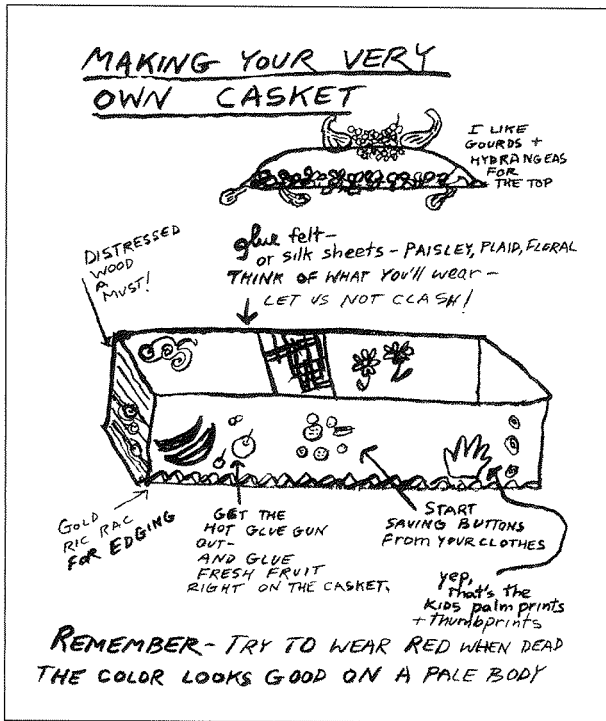 MAKING YOUR VERY
OWN CASKET
I LIKE
GOURDS +
HYDRANGEAS
FOR
THE TOP
DISTRESSED
WOOD
A
MUST!
glue felt-
or silk sheets - PAISLEY, PLAID, FLORAL
THINK OF WHAT YOU'LL wear -
LET US NOT CLASH!
GOLD
RIC RAC
FOR EDGING
GET THE
HOT GLUE GUN
OUT-
AND GLUE
FRESH FRUIT
RIGHT ON THE CASKET.
START
SAVING BUTTONS
FROM YOUR CLOTHES
yep,
that's the
KIDS palm prints
+ thumbprints
REMEMBER - TRY TO WEAR RED WHEN DEAD
THE COLOR LOOKS GOOD ON A PALE BODY